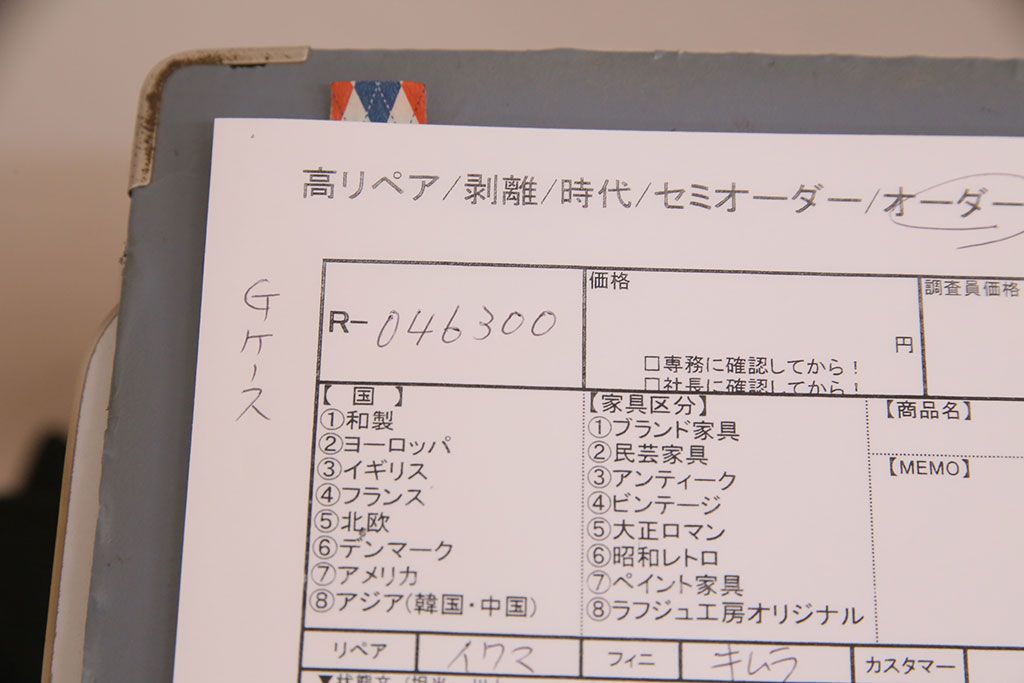 高リペア/剥離/時代/セミオーダー/オーダー
Gケース
R-046300
価格
円
□専務に確認してから!
□社長に確認してから!
調査員価格
【 国 】
①和製
②ヨーロッパ
③イギリス
④フランス
⑤北欧
⑥デンマーク
⑦アメリカ
⑧アジア(韓国・中国)
【家具区分】
①ブランド家具
②民芸家具
③アンティーク
④ビンテージ
⑤大正ロマン
⑥昭和レトロ
⑦ペイント家具
⑧ラフジュ工房オリジナル
【商品名】
【MEMO】
リペア イワマ フィニ キムラ カスタマー